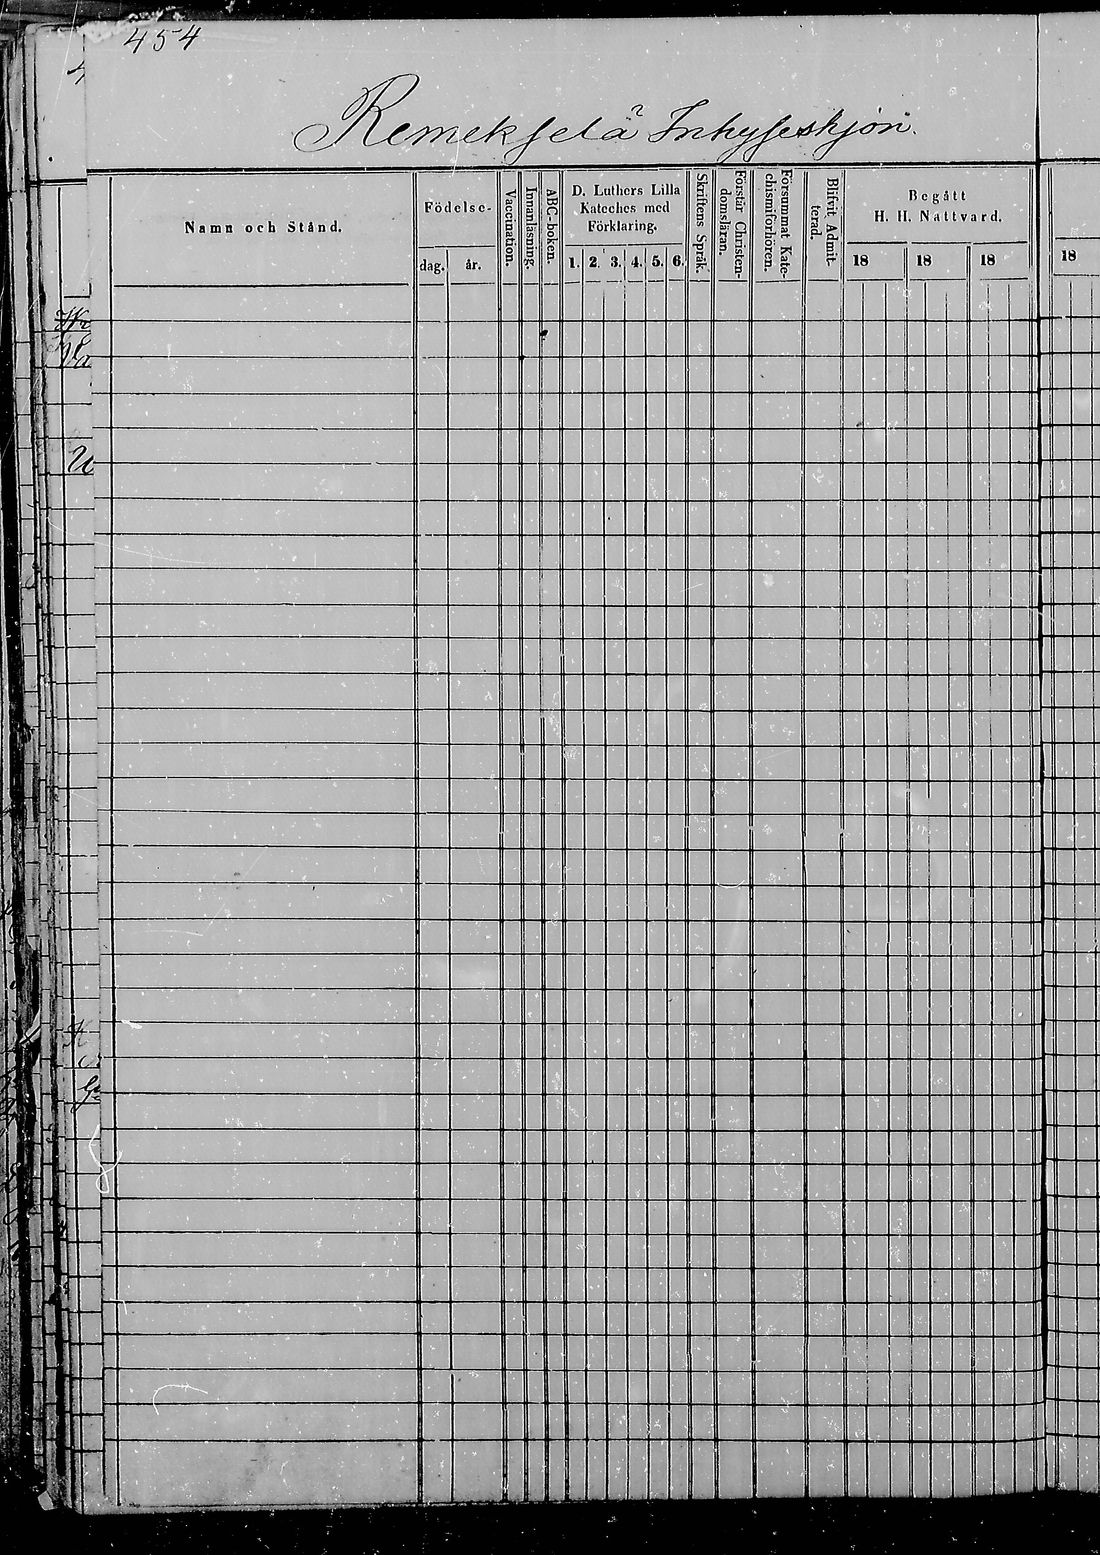 454
Remekselä Inhyseshjon.
Namn och Stånd.
Födelse-
dag. år.
Vaccination.
Innanläsning.
ABC-boken.
D. Luthers Lilla
Kateches med
Förklaring.
1. 2. 3. 4. 5. 6.
Skriftens Språk.
Förstår Christen-
domsläran.
Försummat Kate-
chismiförhören.
Blifvit Admit-
terad.
Begått
H. H. Nattvard.
18 18 18
18